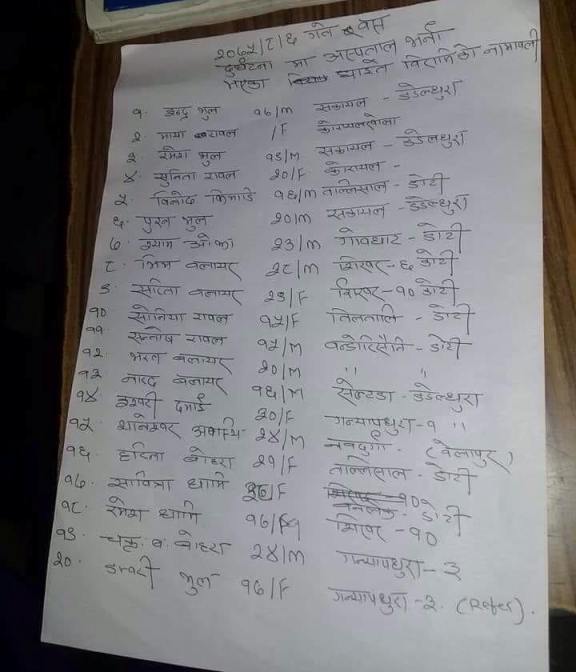 २०७५/८/६ गते बस
दुर्घटना मा अस्पताल भर्ना
भएका घाइते विरामीको नामावली
१. इन्द्र भुल १७/M सकायल - डडेल्धुरा
२. माया रावल /F
३. रमेश भुल १९/M सकायल - डडेलधुरा
४. सुनिता रावल २०/F कोरायल -
५. विनोद १६/M तल्लिसाल - डोटी
६. पुरन भुल २०/M सकायल - डडेल्धुरा
७. श्याम ओझा २३/M गोवघाट - डोटी
८. भिम बलायर २८/M शिखर - ६ डोटी
९. सरिता बलायर २३/F शिखर - १० डोटी
१० सोनिया रावल १५/F तिलताली - डोटी
११. सन्तोष रावल १५/M - डोटी
१२. भरत बलायर २०/M " "
१३ नारद बलायर १६/M - डडेल्धुरा
१४ इश्वरी दमाई २०/F गन्यापधुरा-१ "
१५. २४/M नवदुर्गा. (वेलापुर)
१६. बोहरा २१/F तल्लिसाल - डोटी
१७. सावित्रा धामि /F - डोटी
१८. रमेश धामि १७/M शिखर - १०
१९. चक्र ब. बोहरा २४/M गन्यापधुरा - ३
२०. भुल १७/F गन्यापधुरा - ३. (Refer).